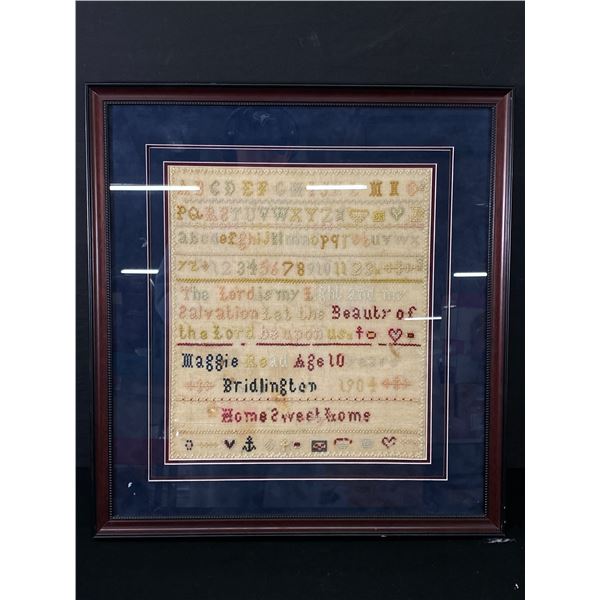 A B C D E F G H I J K L M N O
P Q R S T U V W X Y Z
a b c d e f g h i j k l m n o p q r s t u v w x
y z 1 2 3 4 5 6 7 8 9 10 11 12
The Lord is my Light and my
Salvation Let the Beauty of
the Lord be upon us
Maggie Read Age 10 years
Bridlington 1904
Home Sweet Home